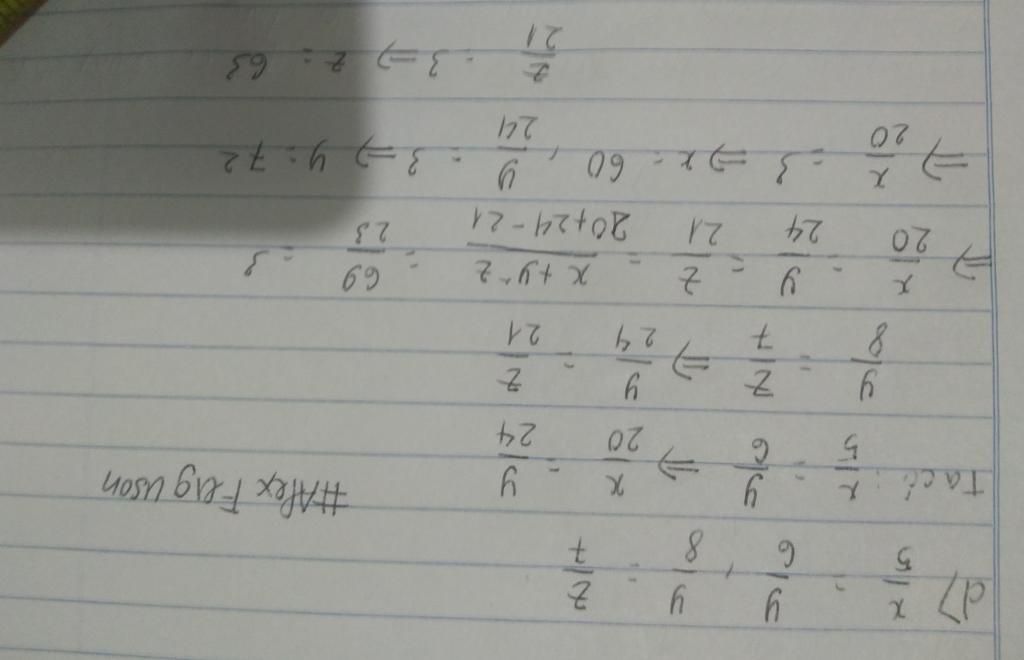 d) x/5 = y/6 , y/8 = z/7
Ta có: x/5 = y/6 ⇒ x/20 = y/24
#Alex Ferguson
y/8 = z/7 ⇒ y/24 = z/21
⇒ x/20 = y/24 = z/21 = x+y-z/20+24-21 = 69/23 = 3
⇒ x/20 = 3 ⇒ x = 60 , y/24 = 3 ⇒ y = 72
z/21 = 3 ⇒ z = 63